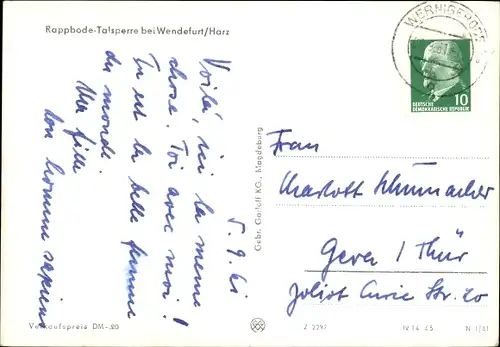 Rappbode-Talsperre bei Wendefurt/Harz
Voilà, ici la meme
chose. Toi avec moi!
Tu est la belle femme
du monde.
Ma fille
ton homme sapiens
5.9.61
Verkaufspreis DM -,20
Gebr. Garloff KG., Magdeburg
WERNIGERODE
10
DEUTSCHE
DEMOKRATISCHE REPUBLIK
Frau
Charlott Schumacher
Gera / Thür
Joliot Curie Str. 20
Z 2297
IV 14 45
N 1/61